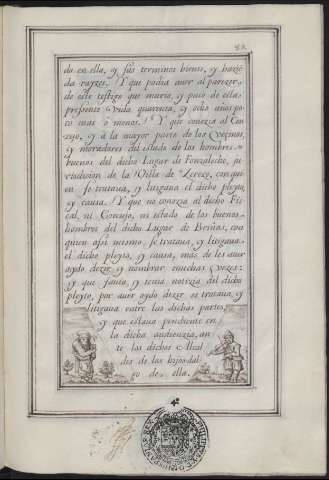 do en ella, y sus terminos bienes, y hazie
da rayzes. Y que podia auer al parezer
de este testigo que maria, y paso de esta
presente Vida quarenta, y ocho años po
co mas ò menos. Y que conozia al Con
zejo, y à la mayor parte de los Vezinos,
y moradores del estado de los hombres
buenos del dicho Lugar de Fonzaleche, ju
risdicion de la Villa de Zerezo, con qui
en se trataua, y litigaua el dicho pleyto,
y causa. Y que no conozia al dicho Fis
cal, ni Conzejo, ni estado de los buenos
hombres del dicho Lugar de Briñas, con
quien assi mismo, se trataua, y litigaua
el dicho pleyto, y causa, mas de los auer
oydo dezir, y nombrar muchas Vezes:
y que sauia, y tenia notizia del dicho
pleyto, por auer oydo dezir se trataua, y
litigaua entre las dichas partes,
y que estaua pendiente en
la dicha audienzia, an
te los dichos Alcal
des de los hijos dal
go de ella.